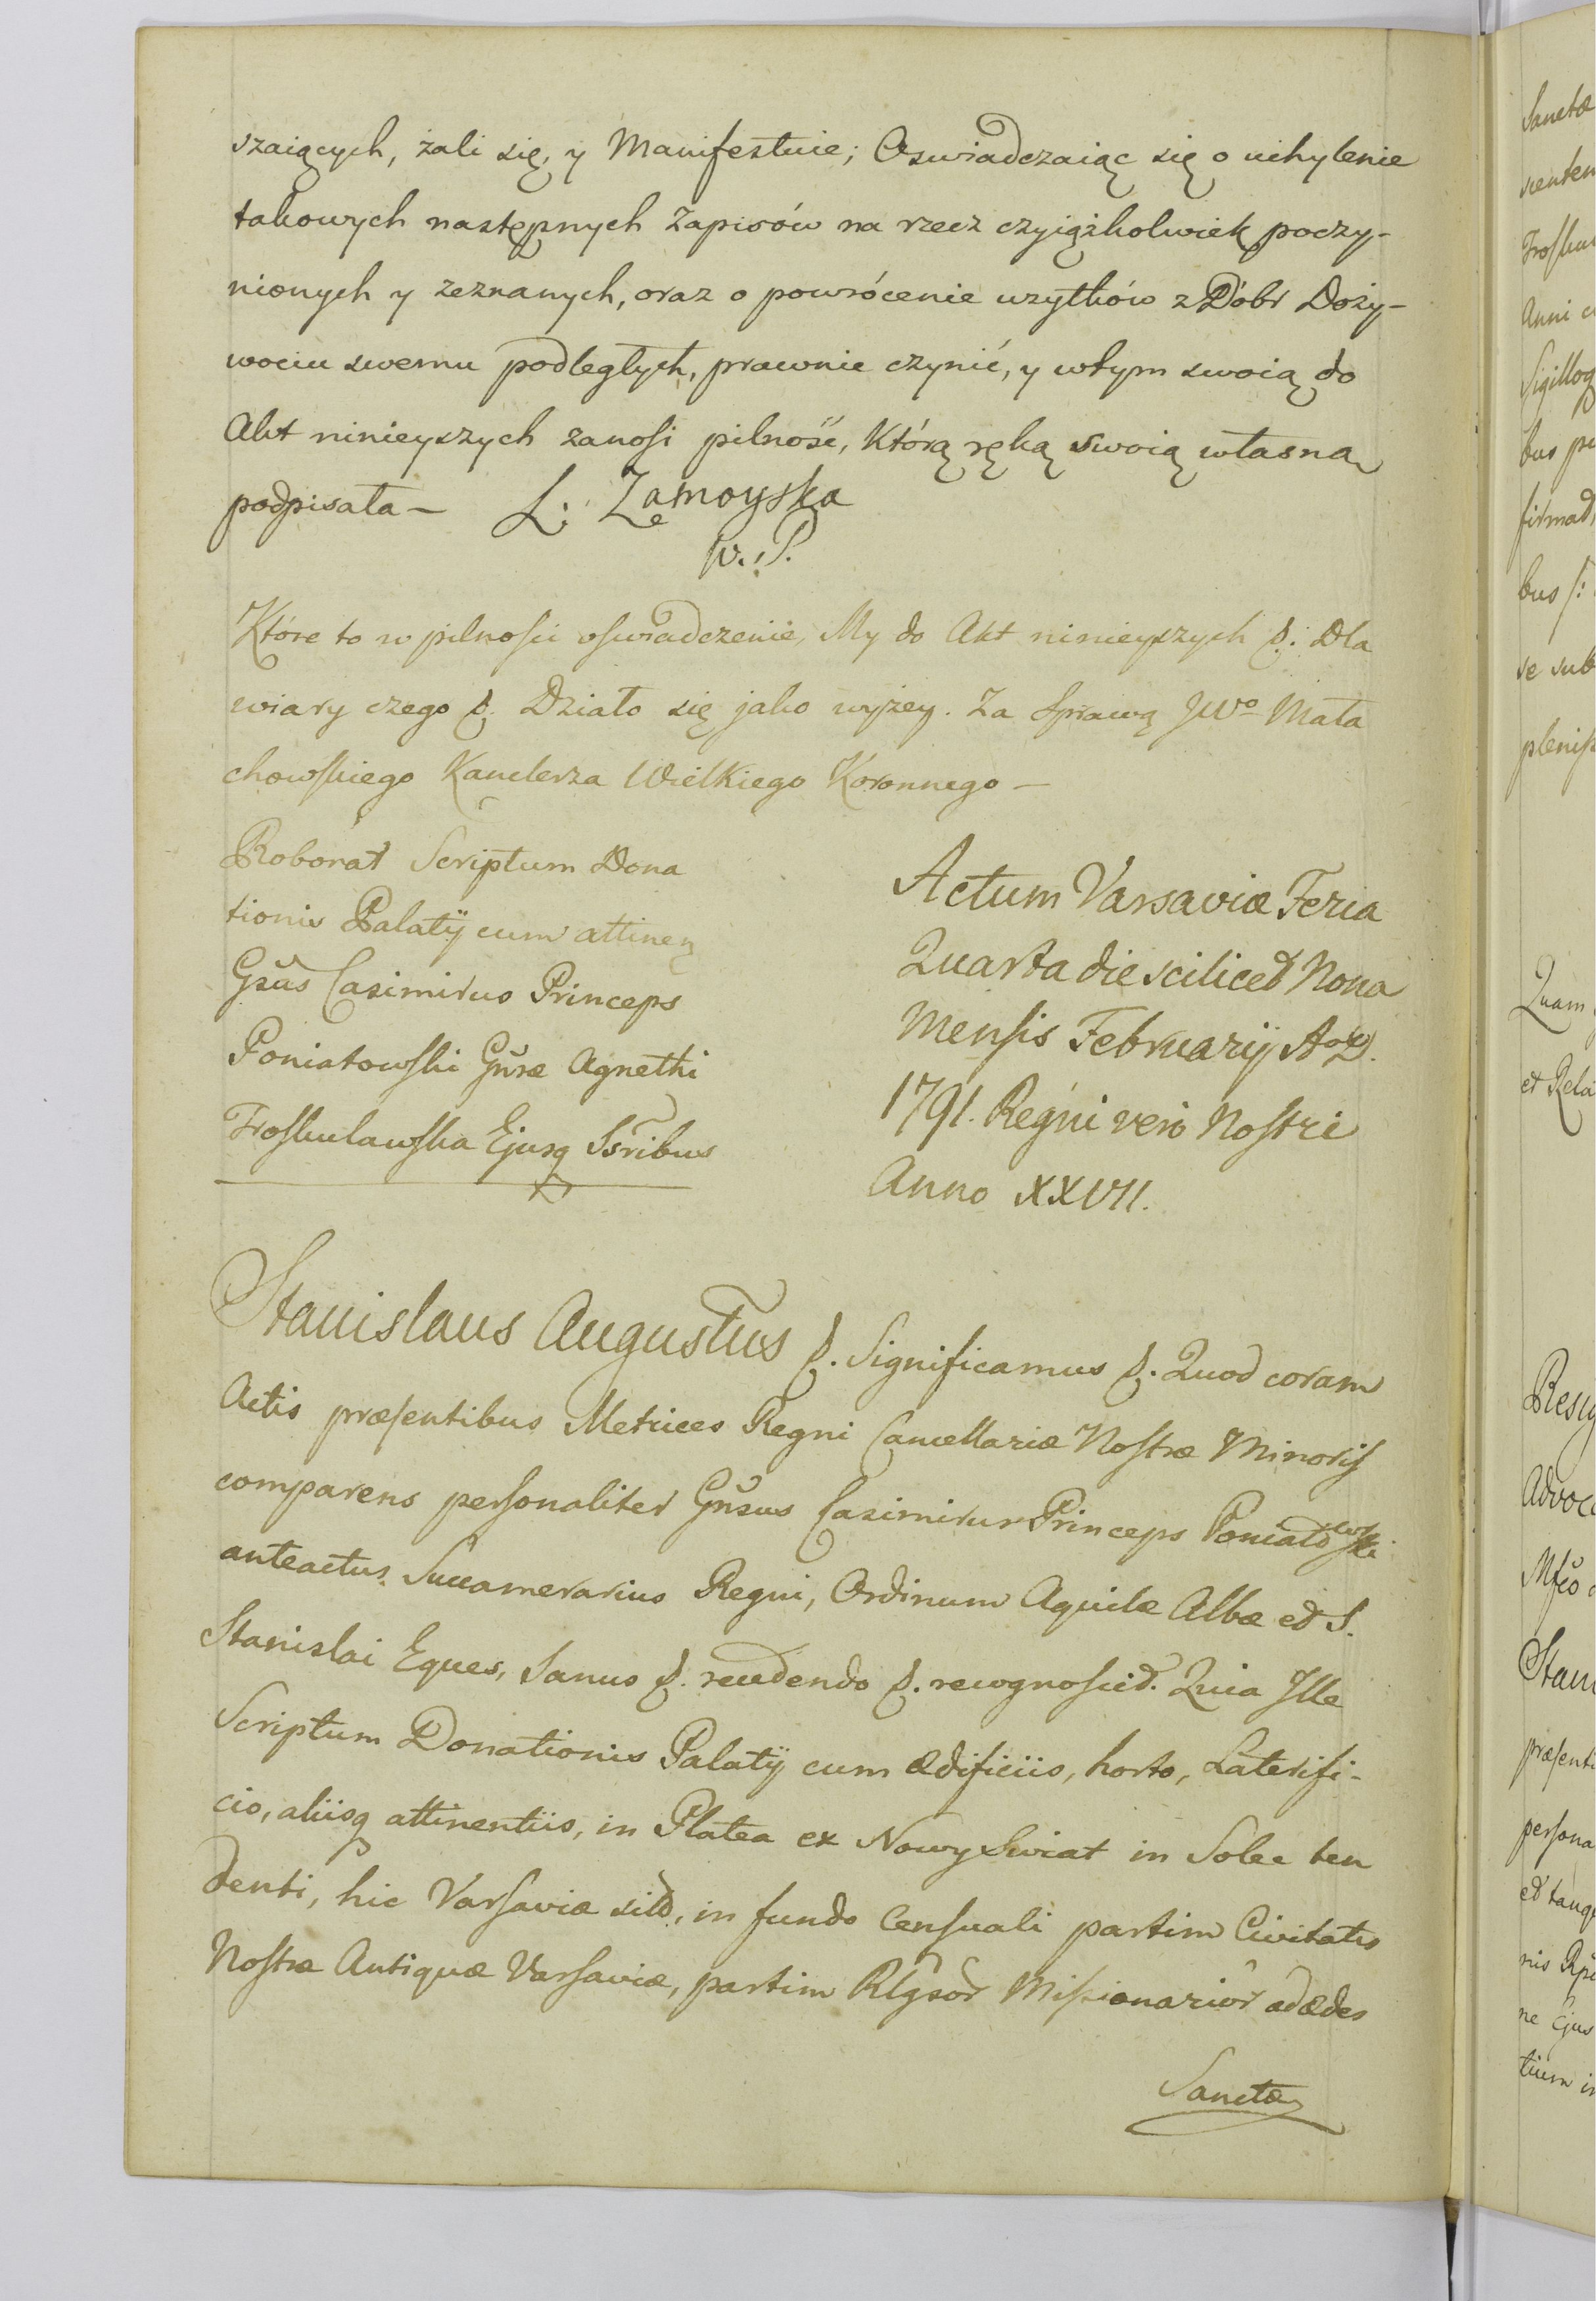 szaiących, żali się, y Manifestuie; Oswiadczaiąc się o uchylenie
takowych następnych Zapisów na rzecz czyiążkolwiek poczy-
nionych y zeznanych, oraz o powrócenie uzytków z Dóbr Doży-
wociu swemu podległych, prawnie czynić, y wtym swoią do
Akt ninieyszych zanosi pilność, Którą ręką swoią własną
podpisała — L: Zamoyska
w. P.
Które to w pilnosci oswiadczenie, My do Akt ninieyszych &. Dla
wiary czego &. Działo się jako wyżey. Za Sprawą JWo Mała
chowskiego Kanclerza Wielkiego Koronnego —
Roborat Scriptum Dona
tionis Palatij cum attinen
Gsus Casimirus Princeps
Poniatowski Gnsæ Agnethi
Troskulawska Ejusq Ssribus
Actum Varsaviæ Feria
Quarta die scilicet Nona
Mensis Februarij A D.
1791. Regni vero Nostri
Anno XXVII.
Stanislaus Augustus &. Significamus &. Quod coram
Actis præsentibus Metrices Regni Cancellariæ Nostræ Minoris
comparens personaliter Gnsus Casimirus Princeps Poniatowski
anteactus Succamerarius Regni, Ordinum Aquilæ Albæ et S.
Stanislai Eques, Sanus &. recedendo &. recognoscit. Quia Ille
Scriptum Donationis Palatij cum ædificiis, horto, Laterifi-
cio, aliisq attinentiis, in Platea ex Nowy Swiat in Solec ten
denti, hic Varsaviæ sit, in fundo Censuali partim Civitatis
Nostræ Antiquæ Varsaviæ, partim Rlgsor Missionarior ad Ædes
Sanctæ